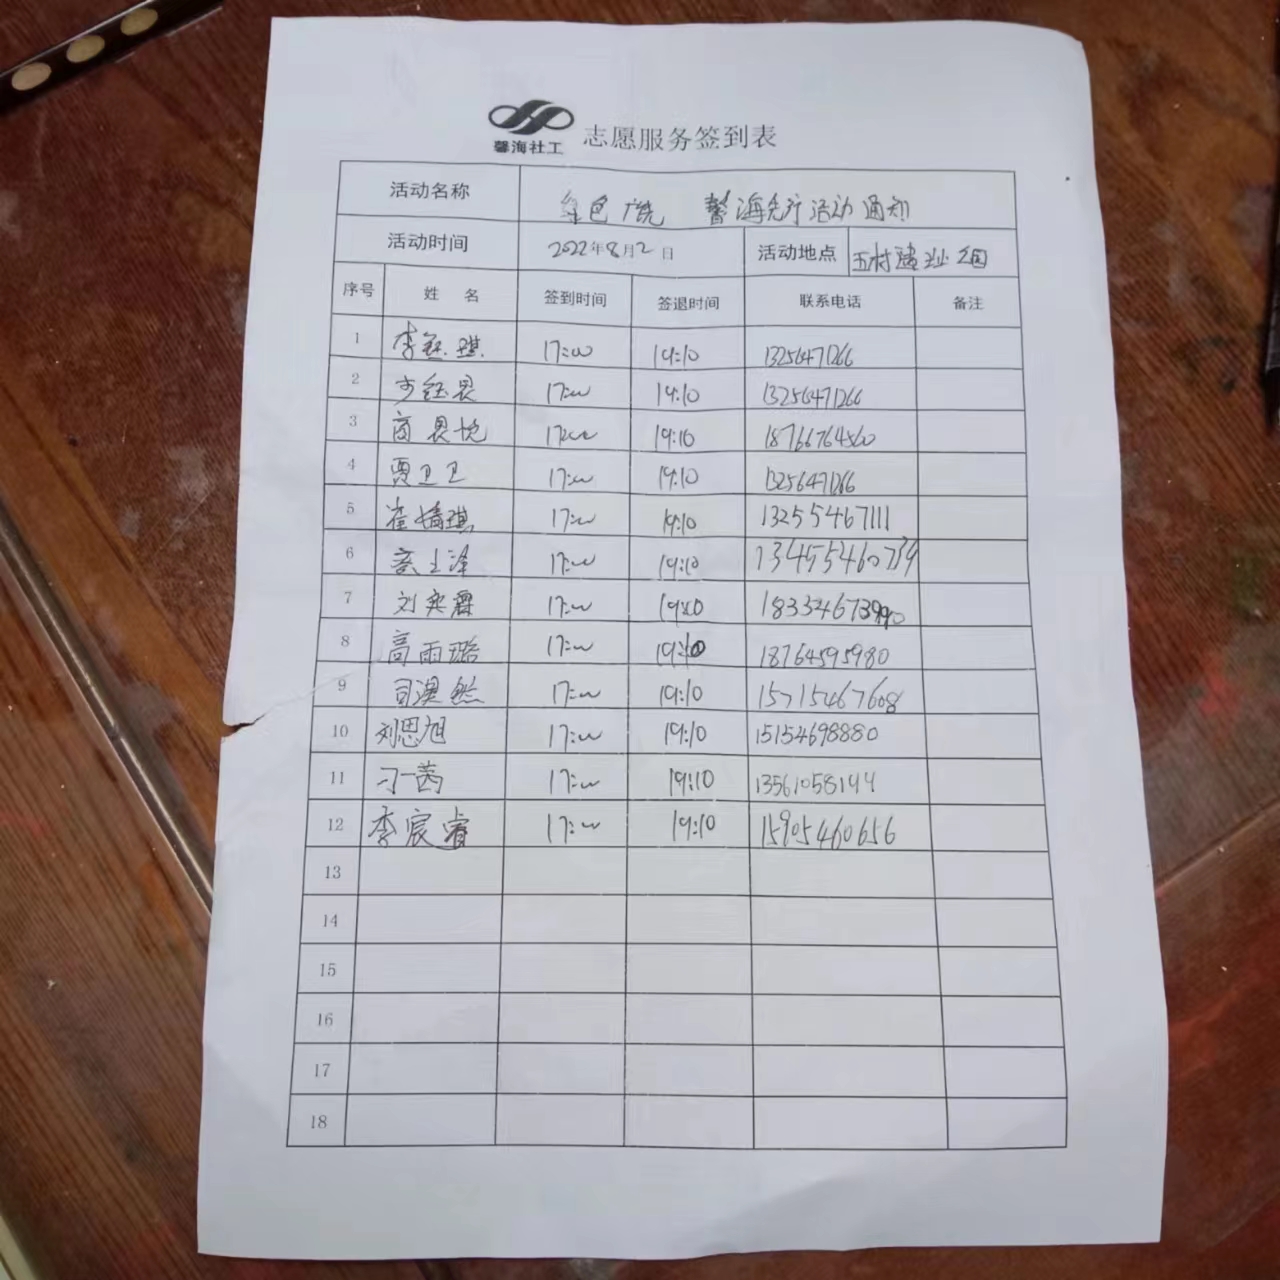 馨海社工 志愿服务签到表
活动名称 绿色广饶 馨海先行活动通知
活动时间 2022年8月2日 活动地点 五村
序号 姓名 签到时间 签退时间 联系电话 备注
1 李钰琪 17:00 19:10 13256471266
2 17:00 19:10 13256471266
3 17:00 19:10 18766764560
4 贾卫卫 17:00 19:10 13256471266
5 崔婧琪 17:00 19:10 13255467111
6 17:00 19:10 13455460739
7 刘奕霖 17:00 19:10
8 高雨璐 17:00 19:10 18764595980
9 司澳然 17:00 19:10 15715467608
10 刘思旭 17:00 19:10 15154698880
11 刁一茜 17:00 19:10 13561058144
12 李宸睿 17:00 19:10 15905460656
13
14
15
16
17
18